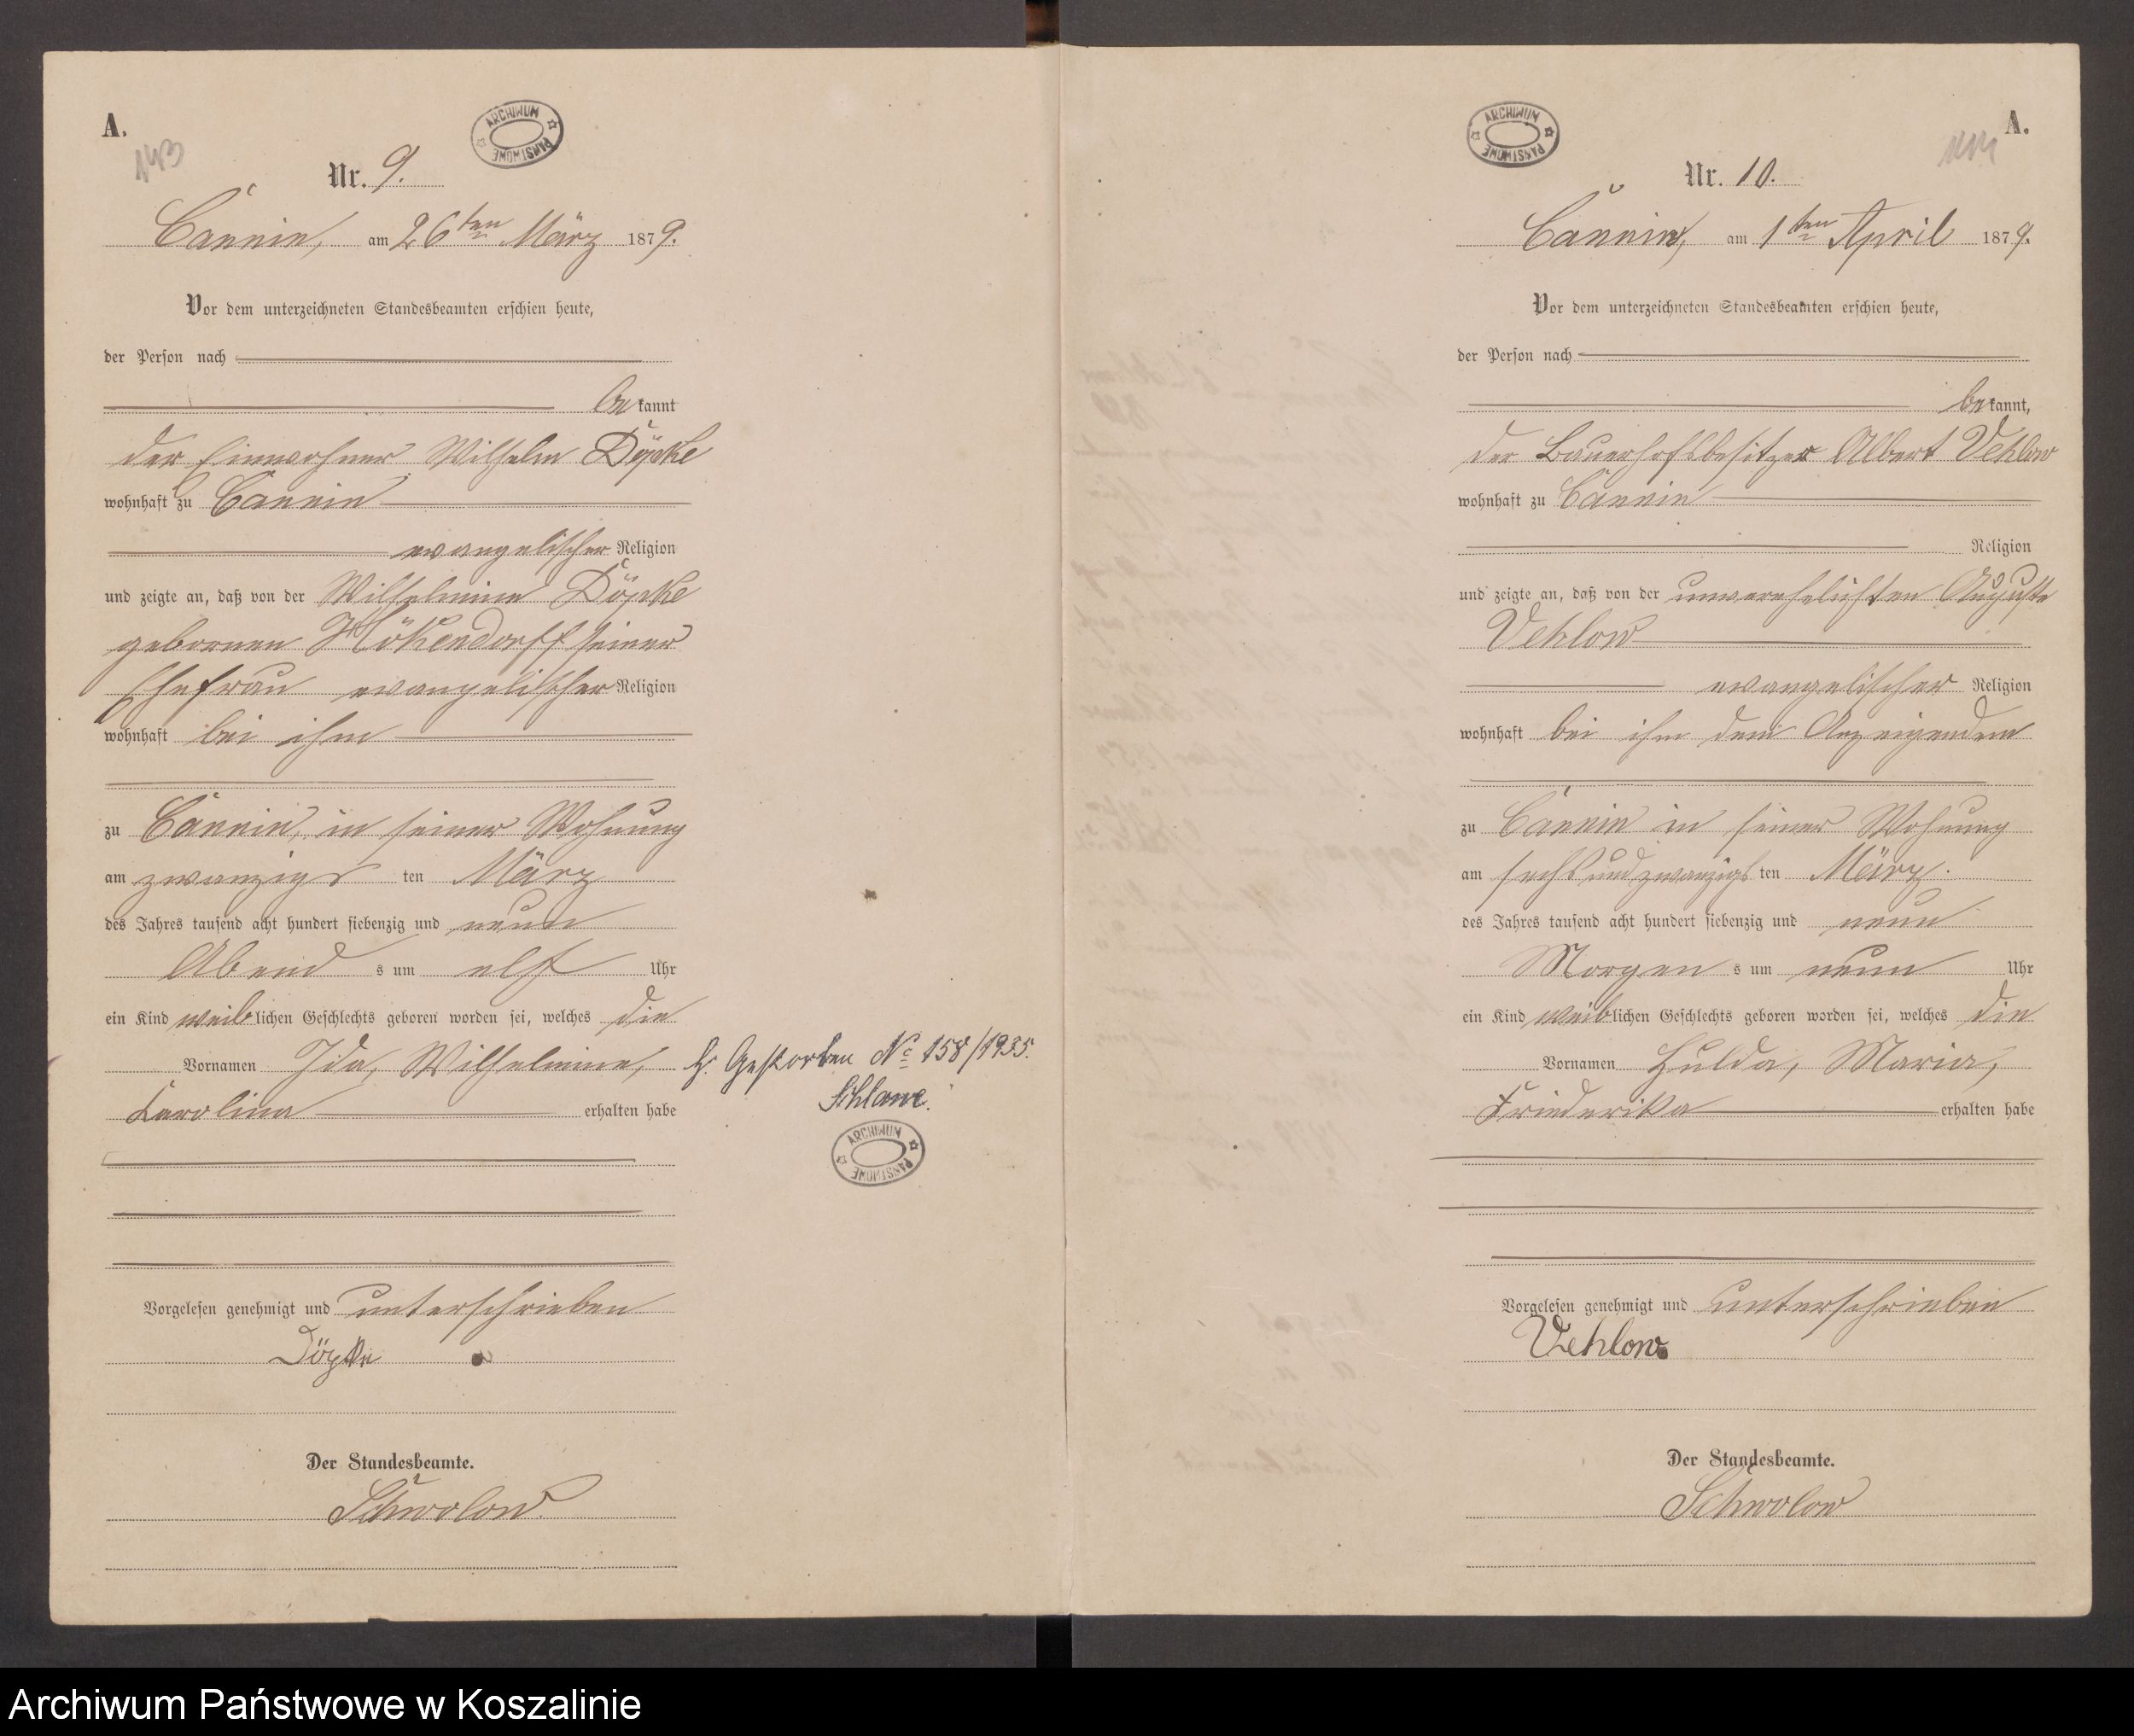 A.
143
ARCHIWUM PAŃSTWOWE
Nr. 9.
Cannin, am 26ten März 1879.
Vor dem unterzeichneten Standesbeamten erschien heute,
der Person nach
bekannt
der Einwohner Wilhelm Döpke
wohnhaft zu Cannin
evangelischer Religion
und zeigte an, daß von der Wilhelmine Döpke
gebornen Hökendorff seiner
Ehefrau evangelischer Religion
wohnhaft bei ihm
zu Cannin, in seiner Wohnung
am zwanzigs ten März
des Jahres tausend acht hundert siebenzig und neun
Abend s um elf Uhr
ein Kind weiblichen Geschlechts geboren worden sei, welches die
Vornamen Ida, Wilhelmine,
Karoline erhalten habe
H. Gestorben No 158/1935.
Schlawe.
ARCHIWUM PAŃSTWOWE
Vorgelesen genehmigt und unterschrieben
Döpke
Der Standesbeamte.
Schwolow.
A.
144
ARCHIWUM PAŃSTWOWE
Nr. 10.
Cannin, am 1ten April 1879.
Vor dem unterzeichneten Standesbeamten erschien heute,
der Person nach
bekannt,
der Bauerhofsbesitzer Albert Vehlow
wohnhaft zu Cannin
Religion
und zeigte an, daß von der unverehelichten Auguste
Vehlow
evangelischer Religion
wohnhaft bei ihm dem Anzeigenden
zu Cannin in seiner Wohnung
am sechsundzwanzigs ten März.
des Jahres tausend acht hundert siebenzig und neun
Morgen s um neun Uhr
ein Kind weiblichen Geschlechts geboren worden sei, welches die
Vornamen Hulda, Maria,
Friederika erhalten habe
Vorgelesen genehmigt und unterschrieben
Vehlow
Der Standesbeamte.
Schwolow
Archiwum Państwowe w Koszalinie